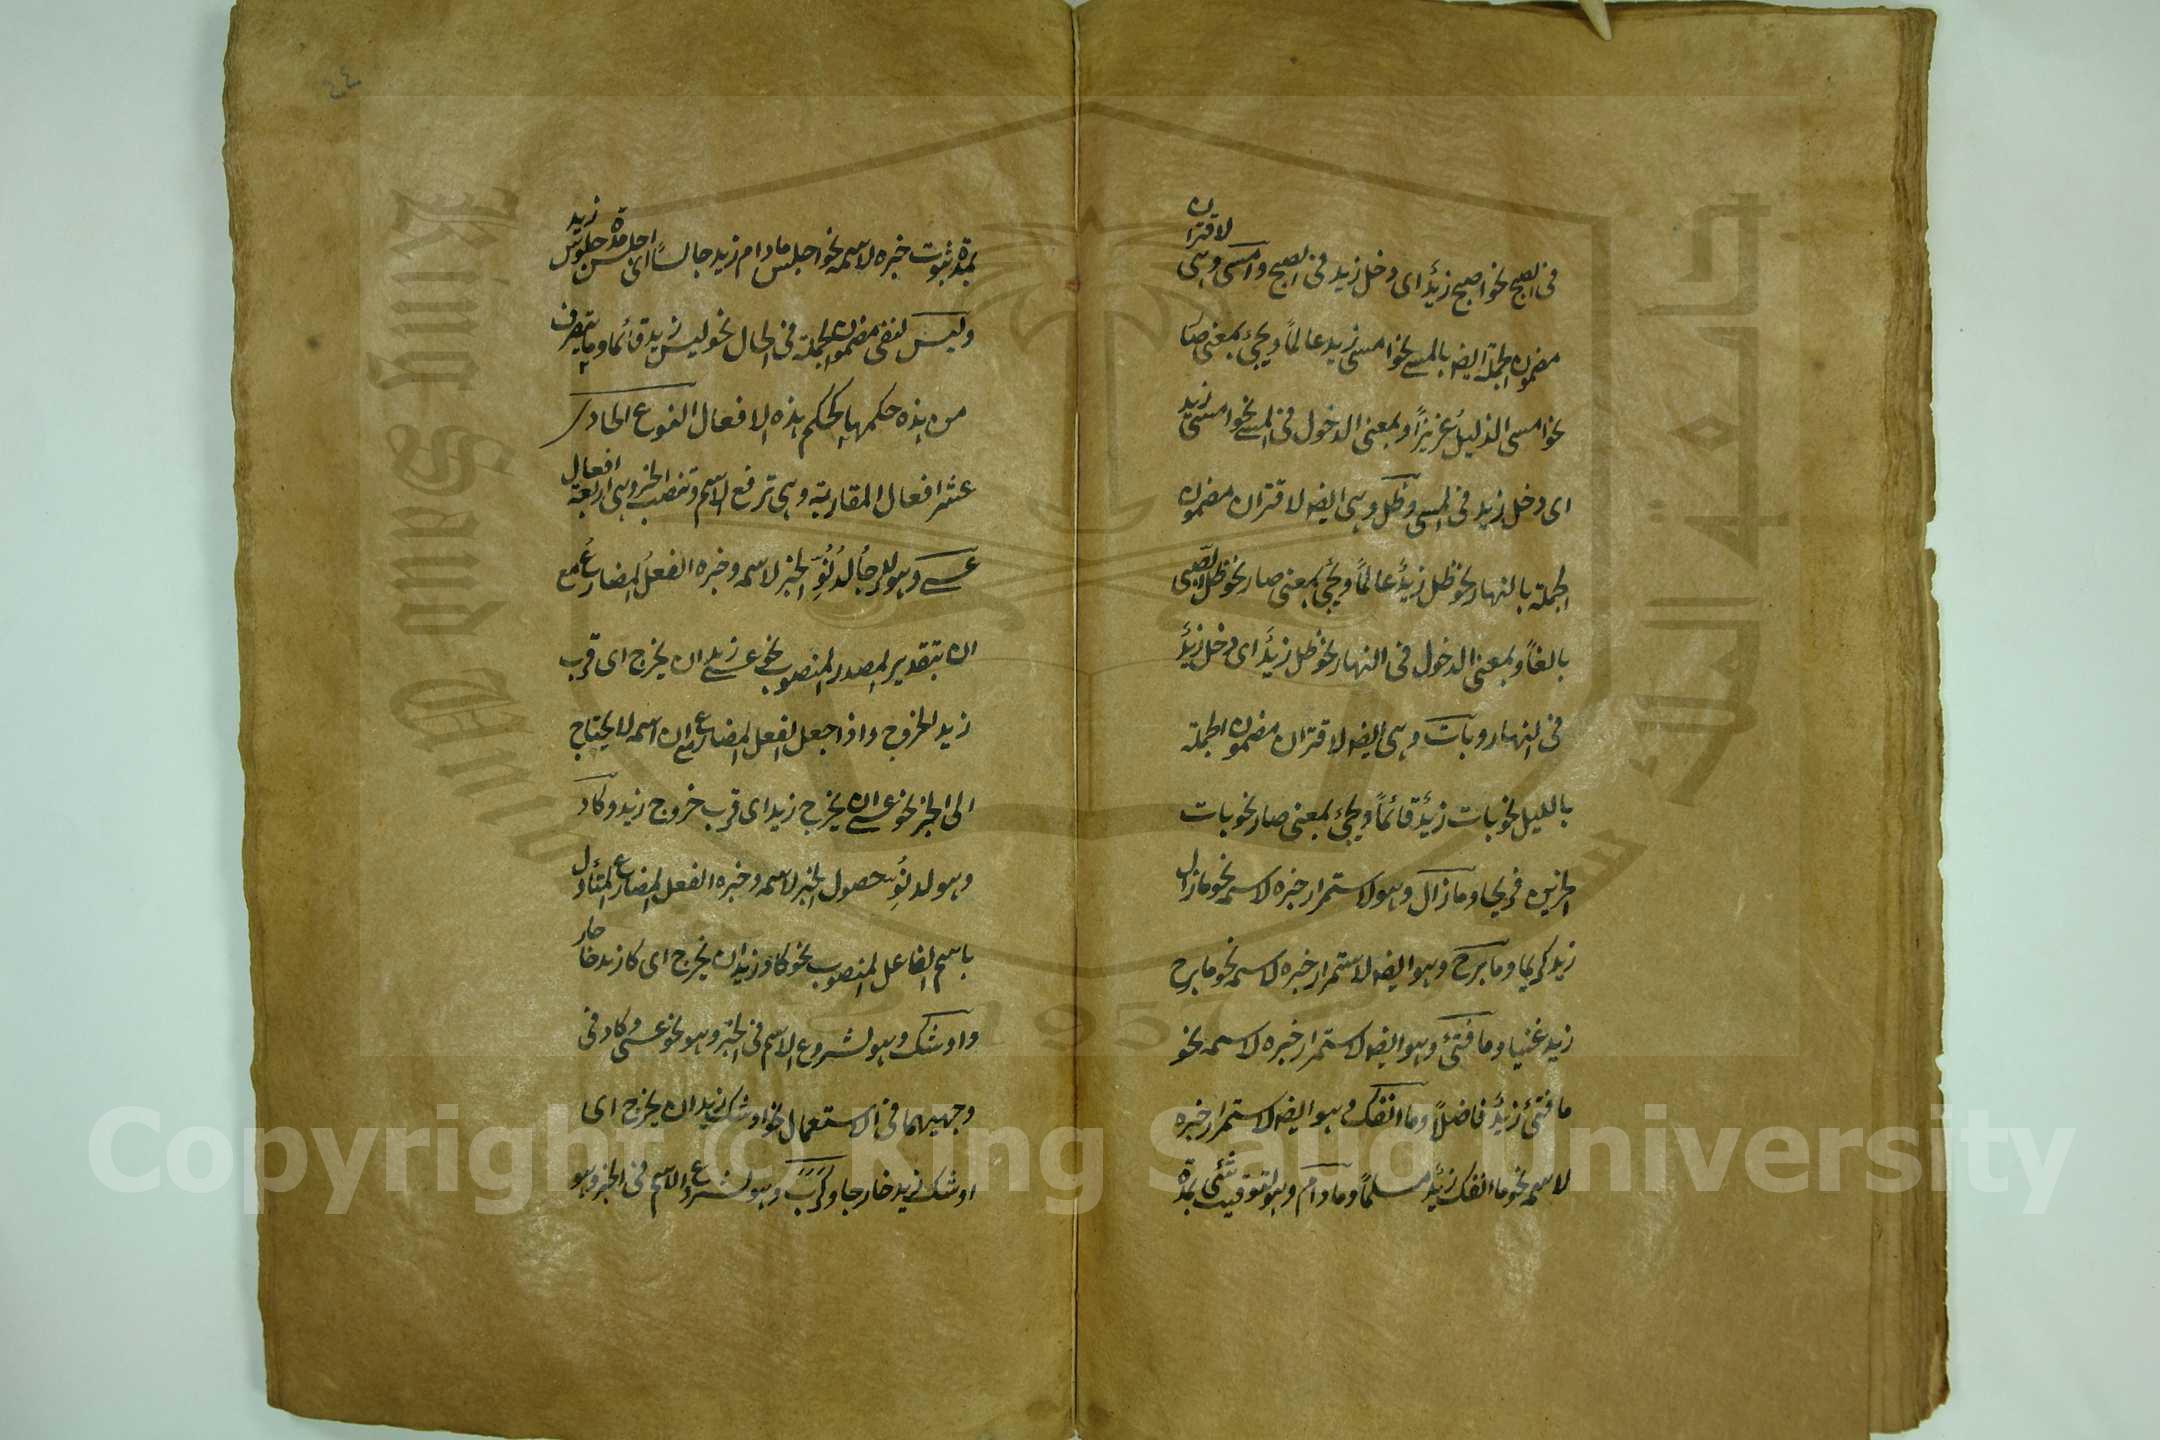 في الصبح نحو اصبح زيدٌ اى دخل زيد فى الصبح وامسى وهى لاقتران
مضمون الجملة ايضا بالمسى نحو امسى زيد عالماً ويجئ بمعنى صار
نحو امسى الذليلُ عزيزاً وبمعنى الدخول فى المسى نحو امسى زيد
اى دخل زيد فى المسى وظل وهى ايضا لاقتران مضمون
الجملة بالنهار نحو ظل زيدٌ عالماً ويجئ بمعنى صار نحو ظل الصبى
بالغاً وبمعنى الدخول فى النهار نحو ظل زيدٌ اى دخل زيدٌ
فى النهار وبات وهى ايضا لاقتران مضمون الجملة
بالليل نحو بات زيدٌ قائماً ويجئ بمعنى صار نحو بات
الحزين فريحا وما زال وهو لاستمرار خبره لاسمه نحو ما زال
زيد كريما وما برح وهو ايضا لاستمرار خبره لاسمه نحو ما برح
زيد غنيا وما فتئ وهو ايضا لاستمرار خبره لاسمه نحو
ما فتئ زيدٌ فاضلاً وما انفك وهو ايضا لاستمرار خبره
لاسمه نحو ما انفك زيدٌ مسلماً وما دام وهو لتوقيت شئ بمدة
٤٤
بمدة ثبوت خبره لاسمه نحو اجلس ما دام زيد جالساً اى اجلس مدة جلوس زيد
وليس لنفى مضمون الجملة فى الحال نحو ليس زيد قائما وما يتصرف
من هذه حكمها كحكم هذه الافعال النوع الحادى
عشر افعال المقاربة وهى ترفع الاسم وتنصب الخبر وهى اربعة افعال
عسى وهو للرجأ لدُنُوِّ الخبر لاسمه وخبره الفعلُ المضارعُ مع
ان بتقدير المصدر المنصوب نحو عسى زيد ان يخرج اى قرب
زيد الخروج واذا جعل الفعل المضارع مع ان اسمه لا يحتاج
الى الخبر نحو عسى ان يخرج زيد اى قرب خروج زيد وكاد
وهو لدنوِّ حصول الخبر لاسمه وخبره الفعل المضارع المتأول
باسم الفاعل المنصوب نحو كاد زيد ان يخرج اى كاد زيد خارجا
واوشك وهو لشروع الاسم فى الخبر وهو نحو عسى وكاد فى
وجهيهما فى الاستعمال نحو اوشك زيد ان يخرج اى
اوشك زيد خارجا وكَرَبَ وهو لشروع الاسم فى الخبر وهو
King Saud University
1957
Copyright © King Saud University